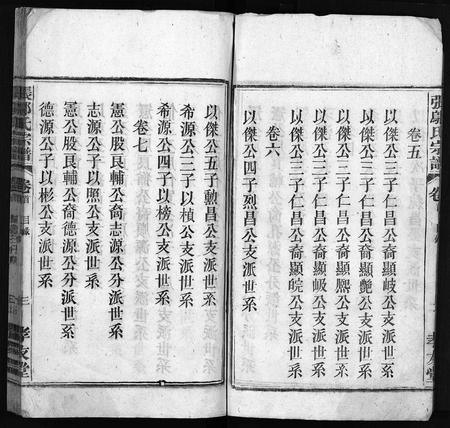 張鄔氏宗譜
卷五
以傑公三子仁昌公裔顯岐公支派世系
以傑公三子仁昌公裔顯艷公支派世系
以傑公三子仁昌公裔顯熙公支派世系
以傑公三子仁昌公裔顯岋公支派世系
以傑公三子仁昌公裔顯皖公支派世系
卷六
以傑公四子烈昌公支派世系
以傑公五子勳昌公支派世系
希源公三子以楨公支派世系
希源公四子以榜公支派世系
卷七
憲公股良輔公裔志源公分派世系
志源公子以照公支派世系
憲公股良輔公裔德源公分派世系
德源公子以彬公支派世系
卷首
目錄
三
孝友堂